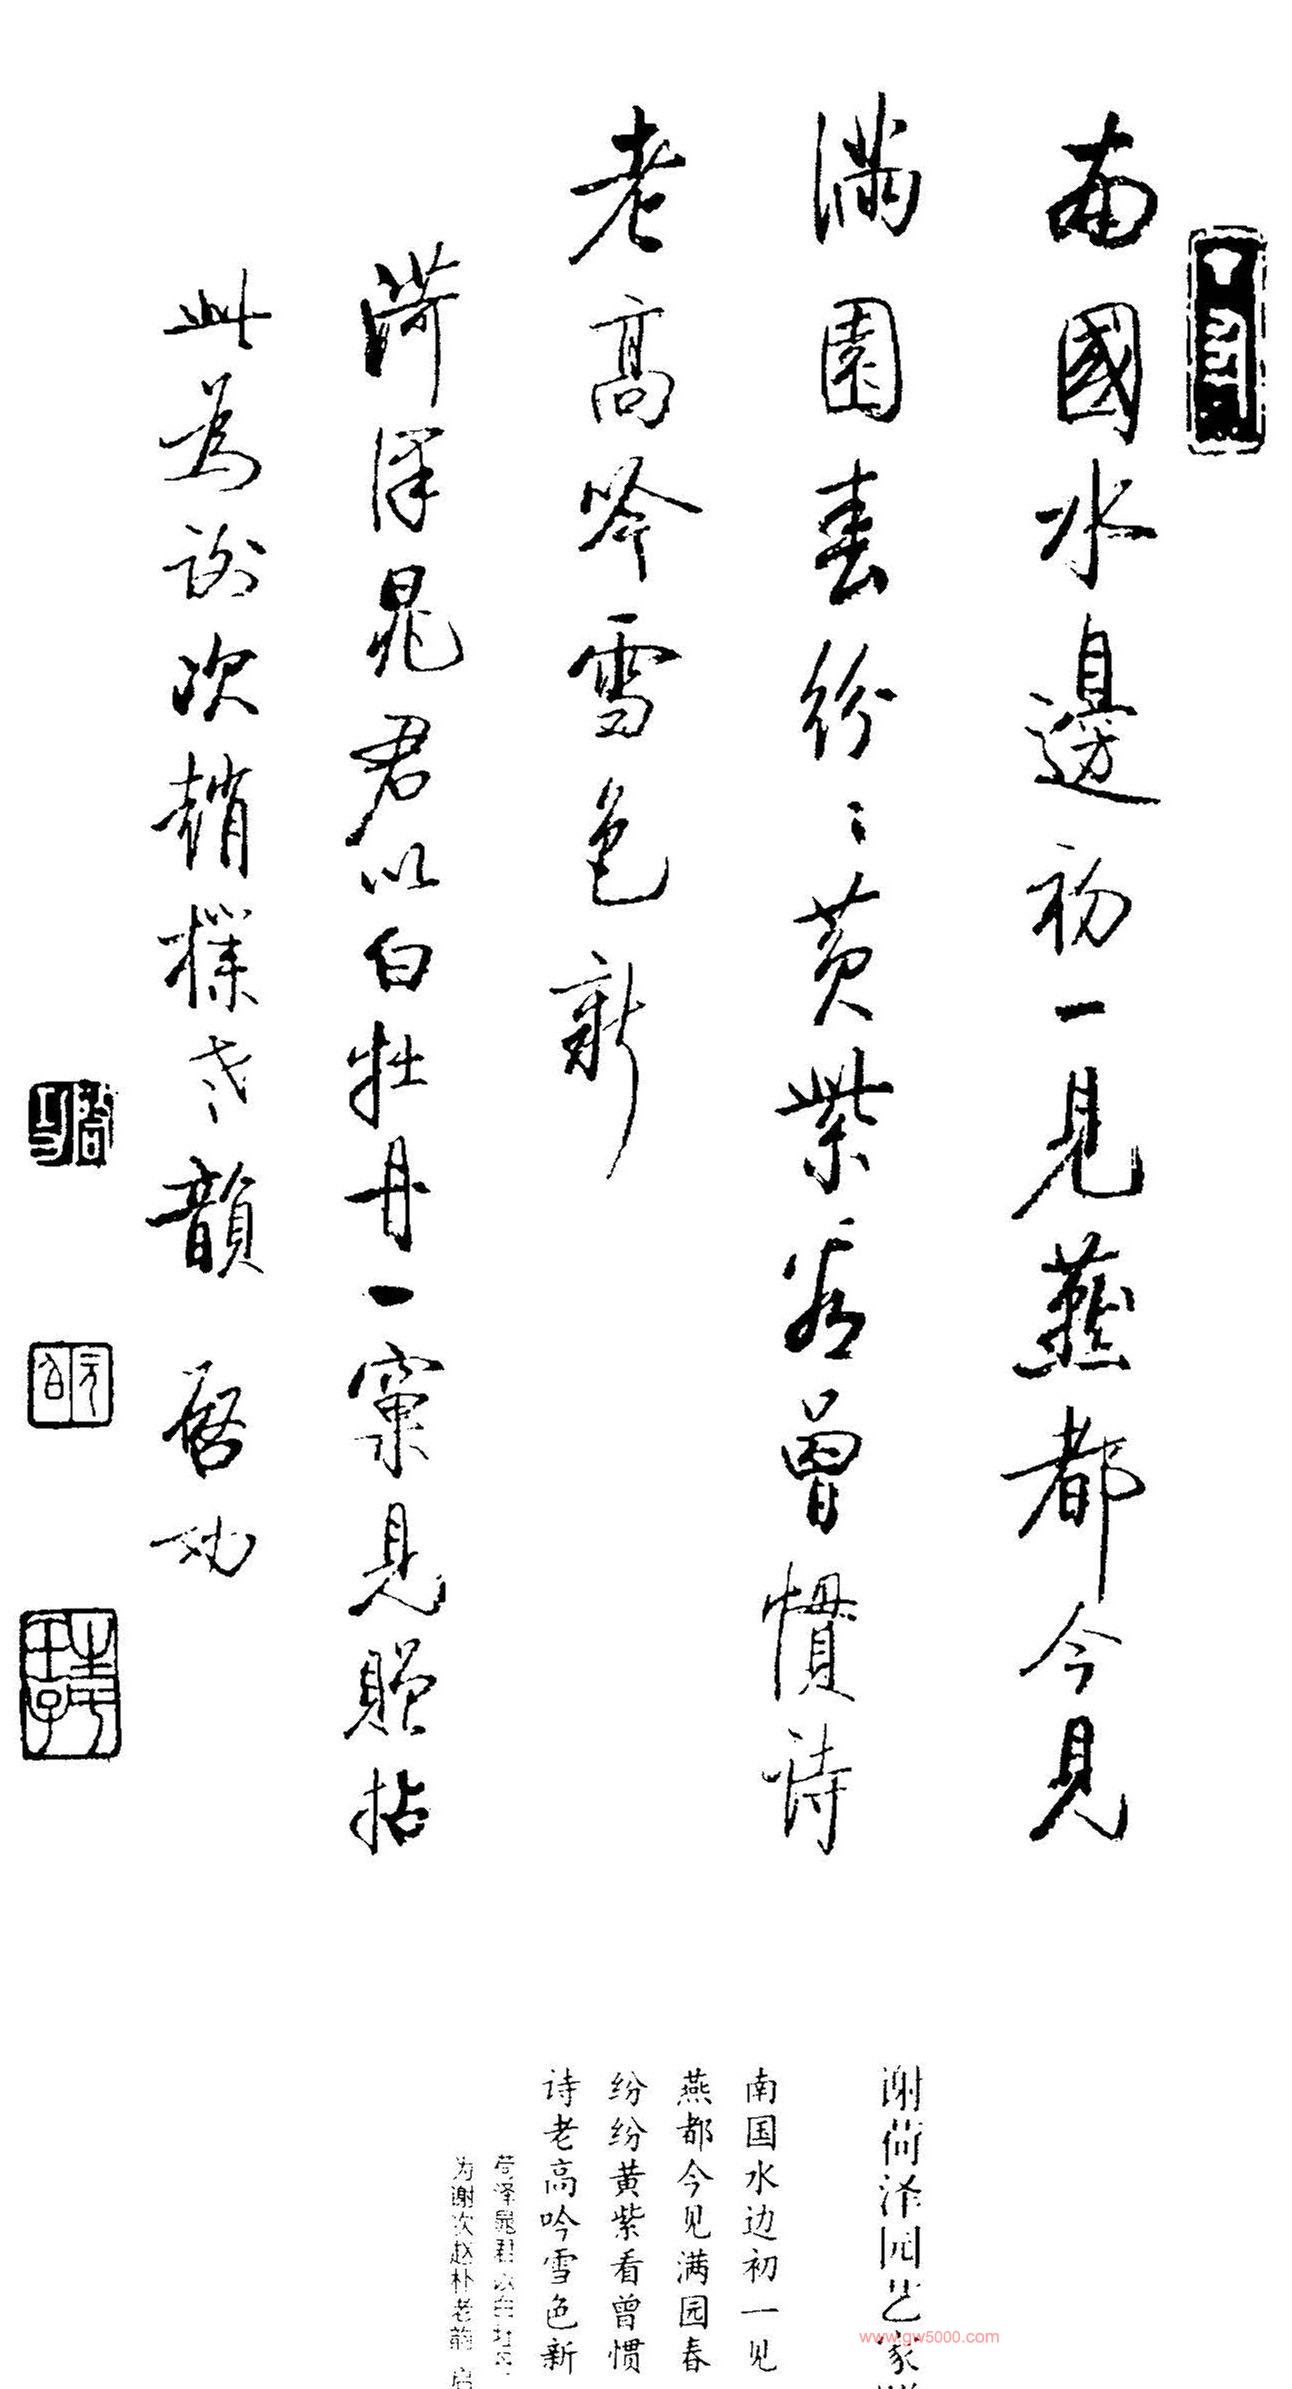 南國水邊初一見燕都今見
滿園春紛〻黃紫看曾慣詩
老高吟雪色新
菏澤晁君以白牡丹一窠見贈拈
此為謝次趙樸老韻 啟功
啟功
元白
谢荷泽园艺家
南国水边初一见
燕都今见满园春
纷纷黄紫看曾惯
诗老高吟雪色新
荷泽晁君以白牡丹
为谢次赵朴老韵 启
www.gw5000.com